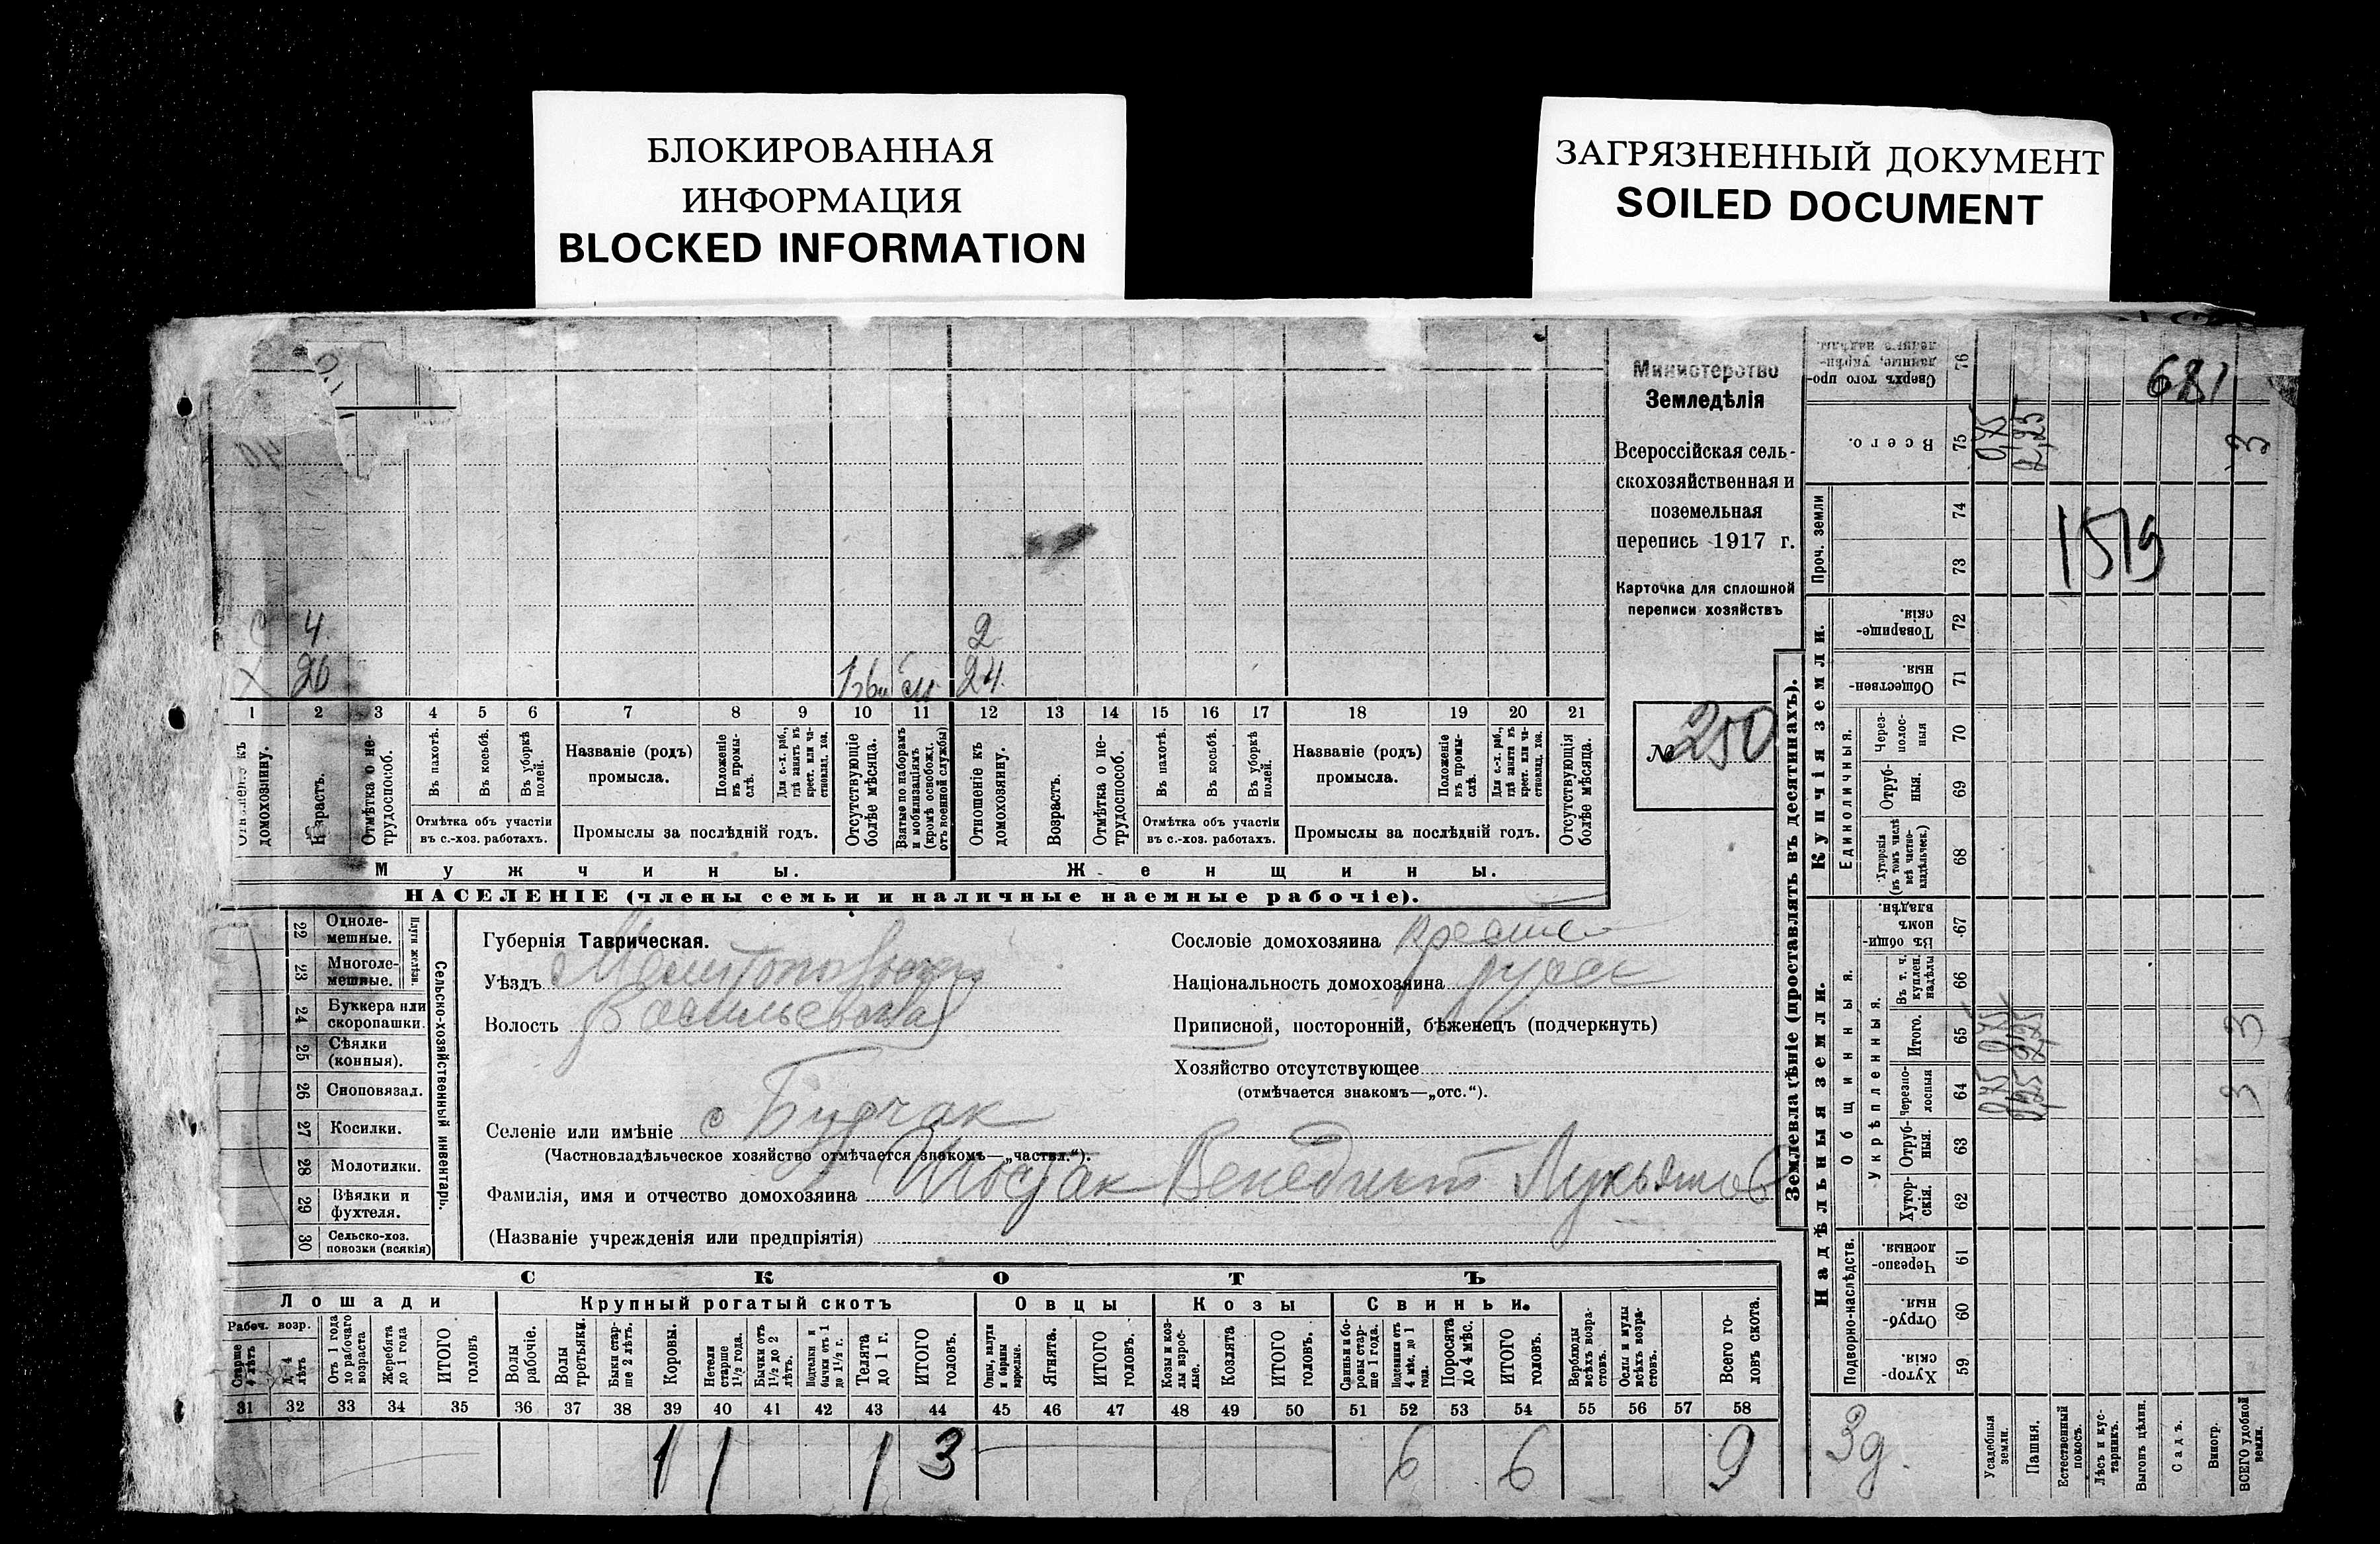 БЛОКИРОВАННАЯ
ИНФОРМАЦИЯ
BLOCKED INFORMATION
ЗАГРЯЗНЕННЫЙ ДОКУМЕНТ
SOILED DOCUMENT
681
1519
Министерство
Земледѣлія
Всероссійская сель-
скохозяйственная и
поземельная
перепись 1917 г.
Карточка для сплошной
переписи хозяйствъ
№ 250
4 2
20 24
1 2 3 4 5 6 7 8 9 10 11 12 13 14 15 16 17 18 19 20 21
Отношеніе къ домохозяину.
Возрастъ.
Отмѣтка о не-трудоспособ.
Въ пахотѣ.
Въ косьбѣ.
Въ уборкѣ полей.
Отмѣтка объ участіи
въ с.-хоз. работахъ.
Названіе (родъ)
промысла.
Положеніе въ промы-слѣ.
Для с.-х. раб., гдѣ занятъ въ крест. или ча-стновлад. хоз.
Промыслы за послѣдній годъ.
Отсутствующіе болѣе мѣсяца.
Взятые по наборамъ и мобилизаціямъ (кромѣ освобожд. отъ военной службы)
Отношеніе къ домохозяину.
Возрастъ.
Отмѣтка о не-трудоспособ.
Въ пахотѣ.
Въ косьбѣ.
Въ уборкѣ полей.
Отмѣтка объ участіи
въ с.-хоз. работахъ.
Названіе (родъ)
промысла.
Положеніе въ промы-слѣ.
Для с.-х. раб., гдѣ занята въ крест. или ча-стновлад. хоз.
Промыслы за послѣдній годъ.
Отсутствующія болѣе мѣсяца.
Мужчины. Женщины.
НАСЕЛЕНІЕ (члены семьи и наличные наемные рабочіе).
Сельско-хозяйственный инвентарь.
Плуги желѣзн.
22 Одноле-мешные.
23 Многоле-мешные.
24 Буккера или скоропашки.
25 Сѣялки (конныя).
26 Сноповязал.
27 Косилки.
28 Молотилки.
29 Вѣялки и фухтеля.
30 Сельско-хоз. повозки (всякія)
Губернія Таврическая.
Уѣздъ Мелитопольскій
Волость Васильевская
Селеніе или имѣніе с Бурчак
(Частновладѣльческое хозяйство отмѣчается знакомъ—„частвл.“).
Фамилія, имя и отчество домохозяина Шостак Венедикт Лукьянов
(Названіе учрежденія или предпріятія)
Сословіе домохозяина крест
Національность домохозяина русск
Приписной, посторонній, бѣженецъ (подчеркнуть)
Хозяйство отсутствующее
(отмѣчается знакомъ—„отс.“).
СКОТЪ
Лошади Крупный рогатый скотъ Овцы Козы Свиньи.
Рабоч. возр.
Старше 4 лѣтъ
До 4 лѣтъ
Отъ 1 года до рабочаго возраста
Жеребята до 1 года
ИТОГО головъ
Волы рабочіе.
Волы третьяки.
Быки стар-ше 2 лѣтъ.
Коровы.
Нетели старше 1½ года.
Бычки отъ 1½ до 2 лѣтъ.
Подтелки и бычки отъ 1 до 1½ г.
Телята до 1 г.
ИТОГО головъ.
Овцы, валухи и бараны взрослые.
Ягнята.
ИТОГО головъ.
Козы и коз-лы взрос-лые.
Козлята
ИТОГО головъ.
Свиньи и бо-ровы стар-ше 1 года.
Подсвинки отъ 4 мѣс. до 1 года.
Поросята до 4 мѣс.
ИТОГО головъ.
Верблюды всѣхъ возра-стовъ.
Ослы и мулы всѣхъ возра-стовъ.
Всего го-ловъ скота.
31 32 33 34 35 36 37 38 39 40 41 42 43 44 45 46 47 48 49 50 51 52 53 54 55 56 57 58
1 1 1 3 6 6 9
Землевладѣніе (проставлять въ десятинахъ).
Купчія земли.
Надѣльныя земли.
Сверхъ того про-данные, укрѣп-ленные надѣлы. 76
Всего. 75 0,75 2,25 3
Проч. земли 74 73
Товарище-скія. 72
Обществен-ныя. 71
Единоличныя.
Через-полос-ныя 70
Отруб-ныя. 69
Хуторскія (въ томъ числѣ всѣ частно-владѣльческ.) 68
Общинныя.
Въ общин-номъ владѣн. 67
Укрѣпленныя.
Въ т. ч. куплен. надѣлы 66
Итого. 65 0,75 2,25 3
Черезпо-лосныя 64 0,75 2,25 3
Отруб-ныя. 63
Хутор-скія. 62
Подворно-наслѣдств.
Черезпо-лосныя. 61
Отруб-ныя. 60
Хутор-скія. 59
3д.
Усадебныя земли.
Пашня.
Естественный покосъ.
Лѣсъ и кус-тарникъ.
Выгонъ цѣлин.
Садъ.
Виногр.
ВСЕГО удобной земли.